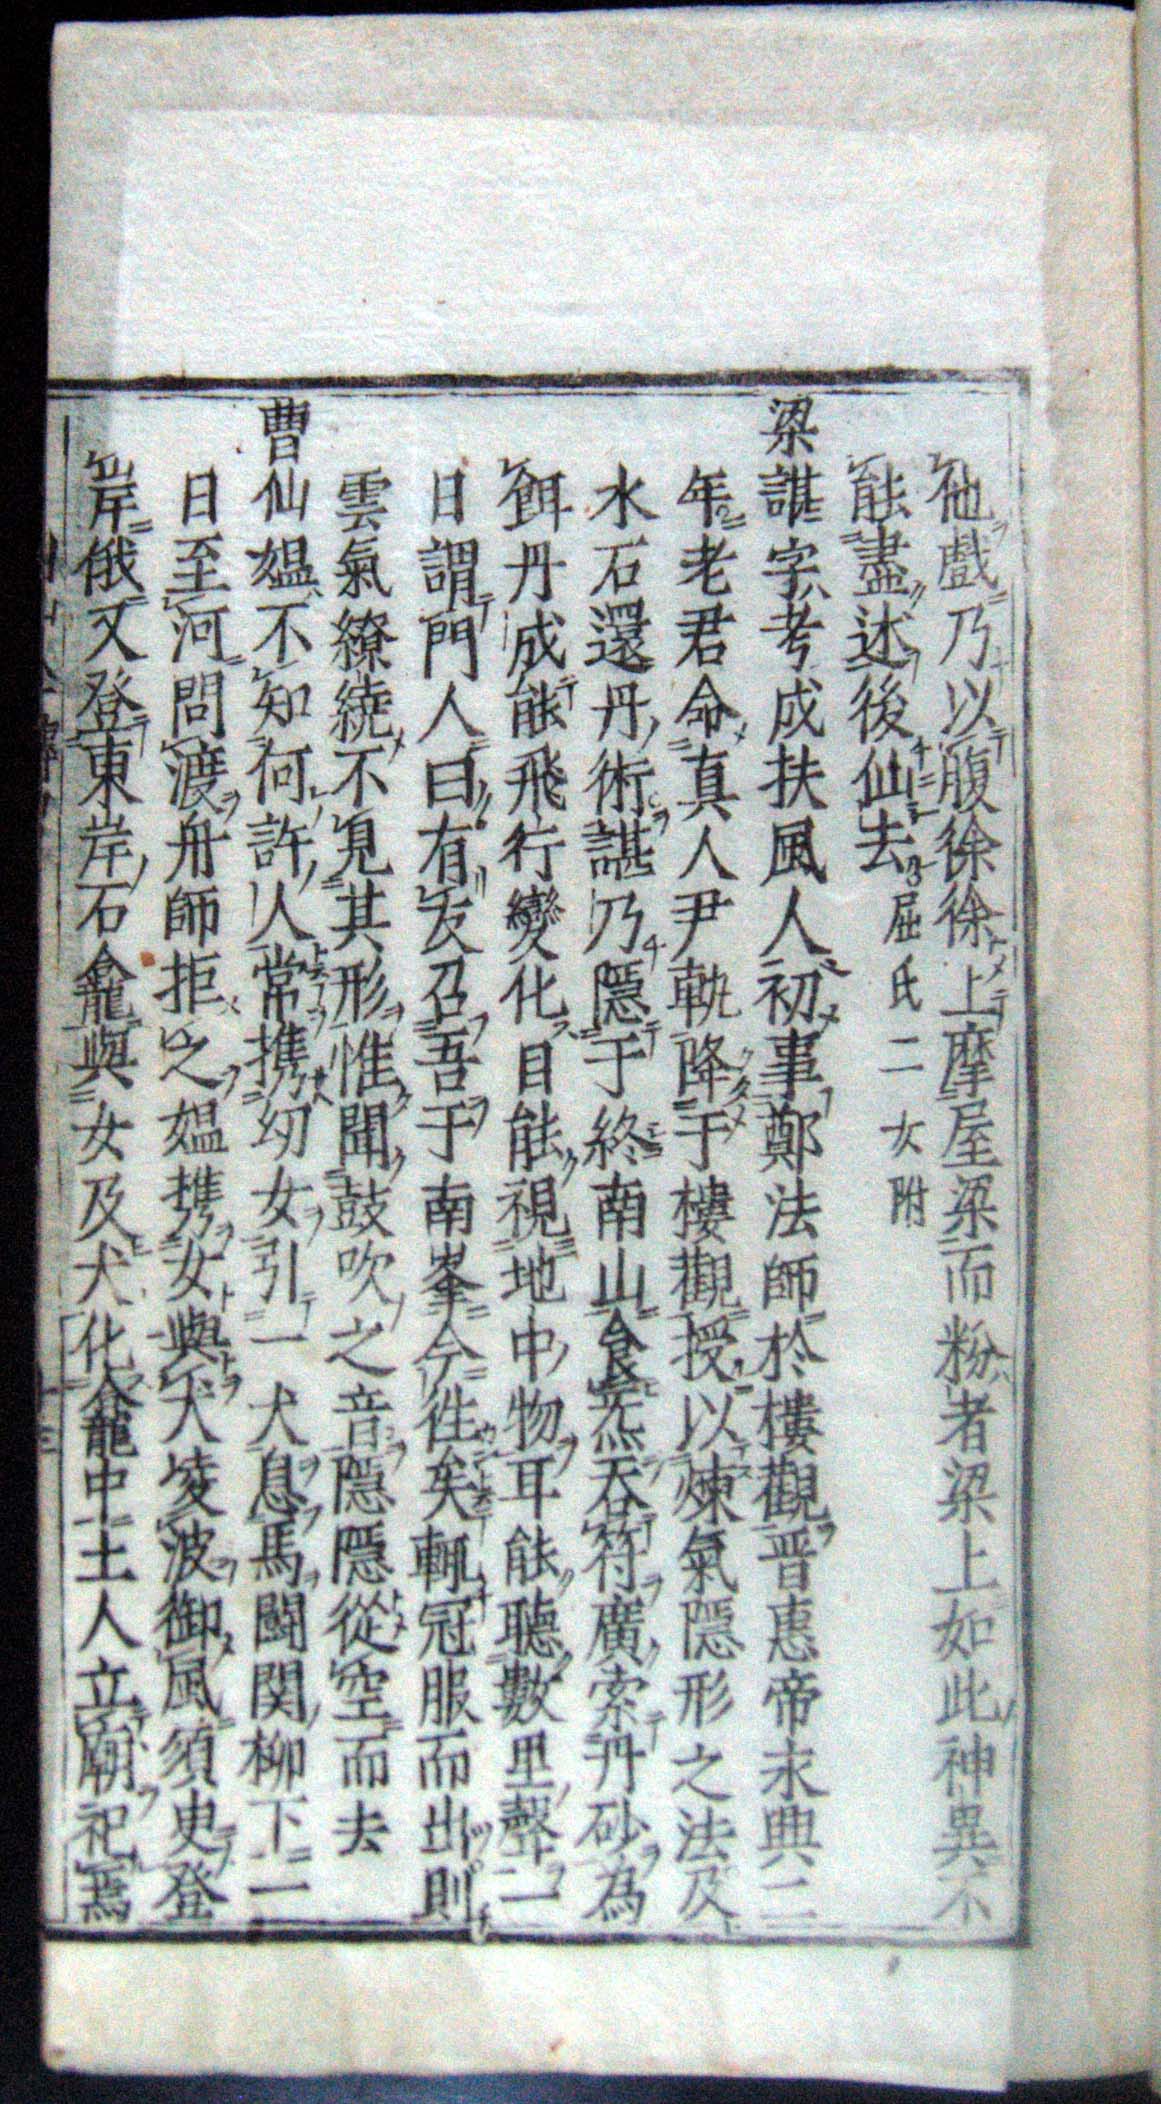 他戲乃以腹徐徐上摩屋梁而粉者梁上如此神異不
能盡述後仙去屈氏二女附
梁諶字考成扶風人初事鄭法師於樓觀晋惠帝永興二
年老君命真人尹軌降于樓觀授以煉氣隱形之法及
水石還丹術諶乃隱于終南山食炁吞符廣索丹砂為
餌丹成能飛行變化目能視地中物耳能聽數里聲一
日謂門人曰有友召吾于南峯今徃矣輒冠服而出則
雲氣繚繞不見其形惟聞鼓吹之音隱隱從空而去
曹仙媼不知何許人常携幼女引一犬息馬鬭関柳下一
日至河問渡舟師拒之媼携女與犬凌波御風須臾登
岸俄又登東岸石龕與女及犬化龕中土人立廟祀焉